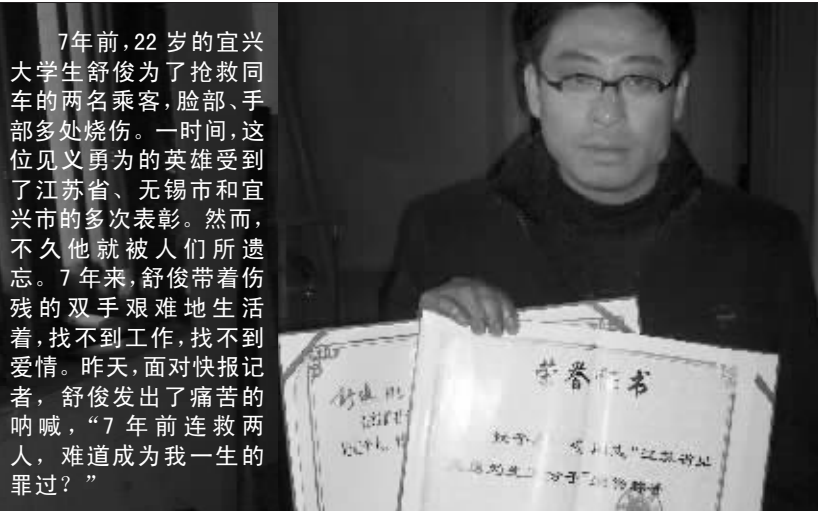 7年前，22 岁的宜兴
大学生舒俊为了抢救同
车的两名乘客，脸部、手
部多处烧伤。一时间，这
位见义勇为的英雄受到
了江苏省、无锡市和宜
兴市的多次表彰。然而，
不久他就被人们所遗
忘。7 年来，舒俊带着伤
残的双手艰难地生活
着，找不到工作，找不到
爱情。昨天，面对快报记
者，舒俊发出了痛苦的
呐喊，“7 年前连救两
人，难道成为我一生的
罪过？”
荣誉证书